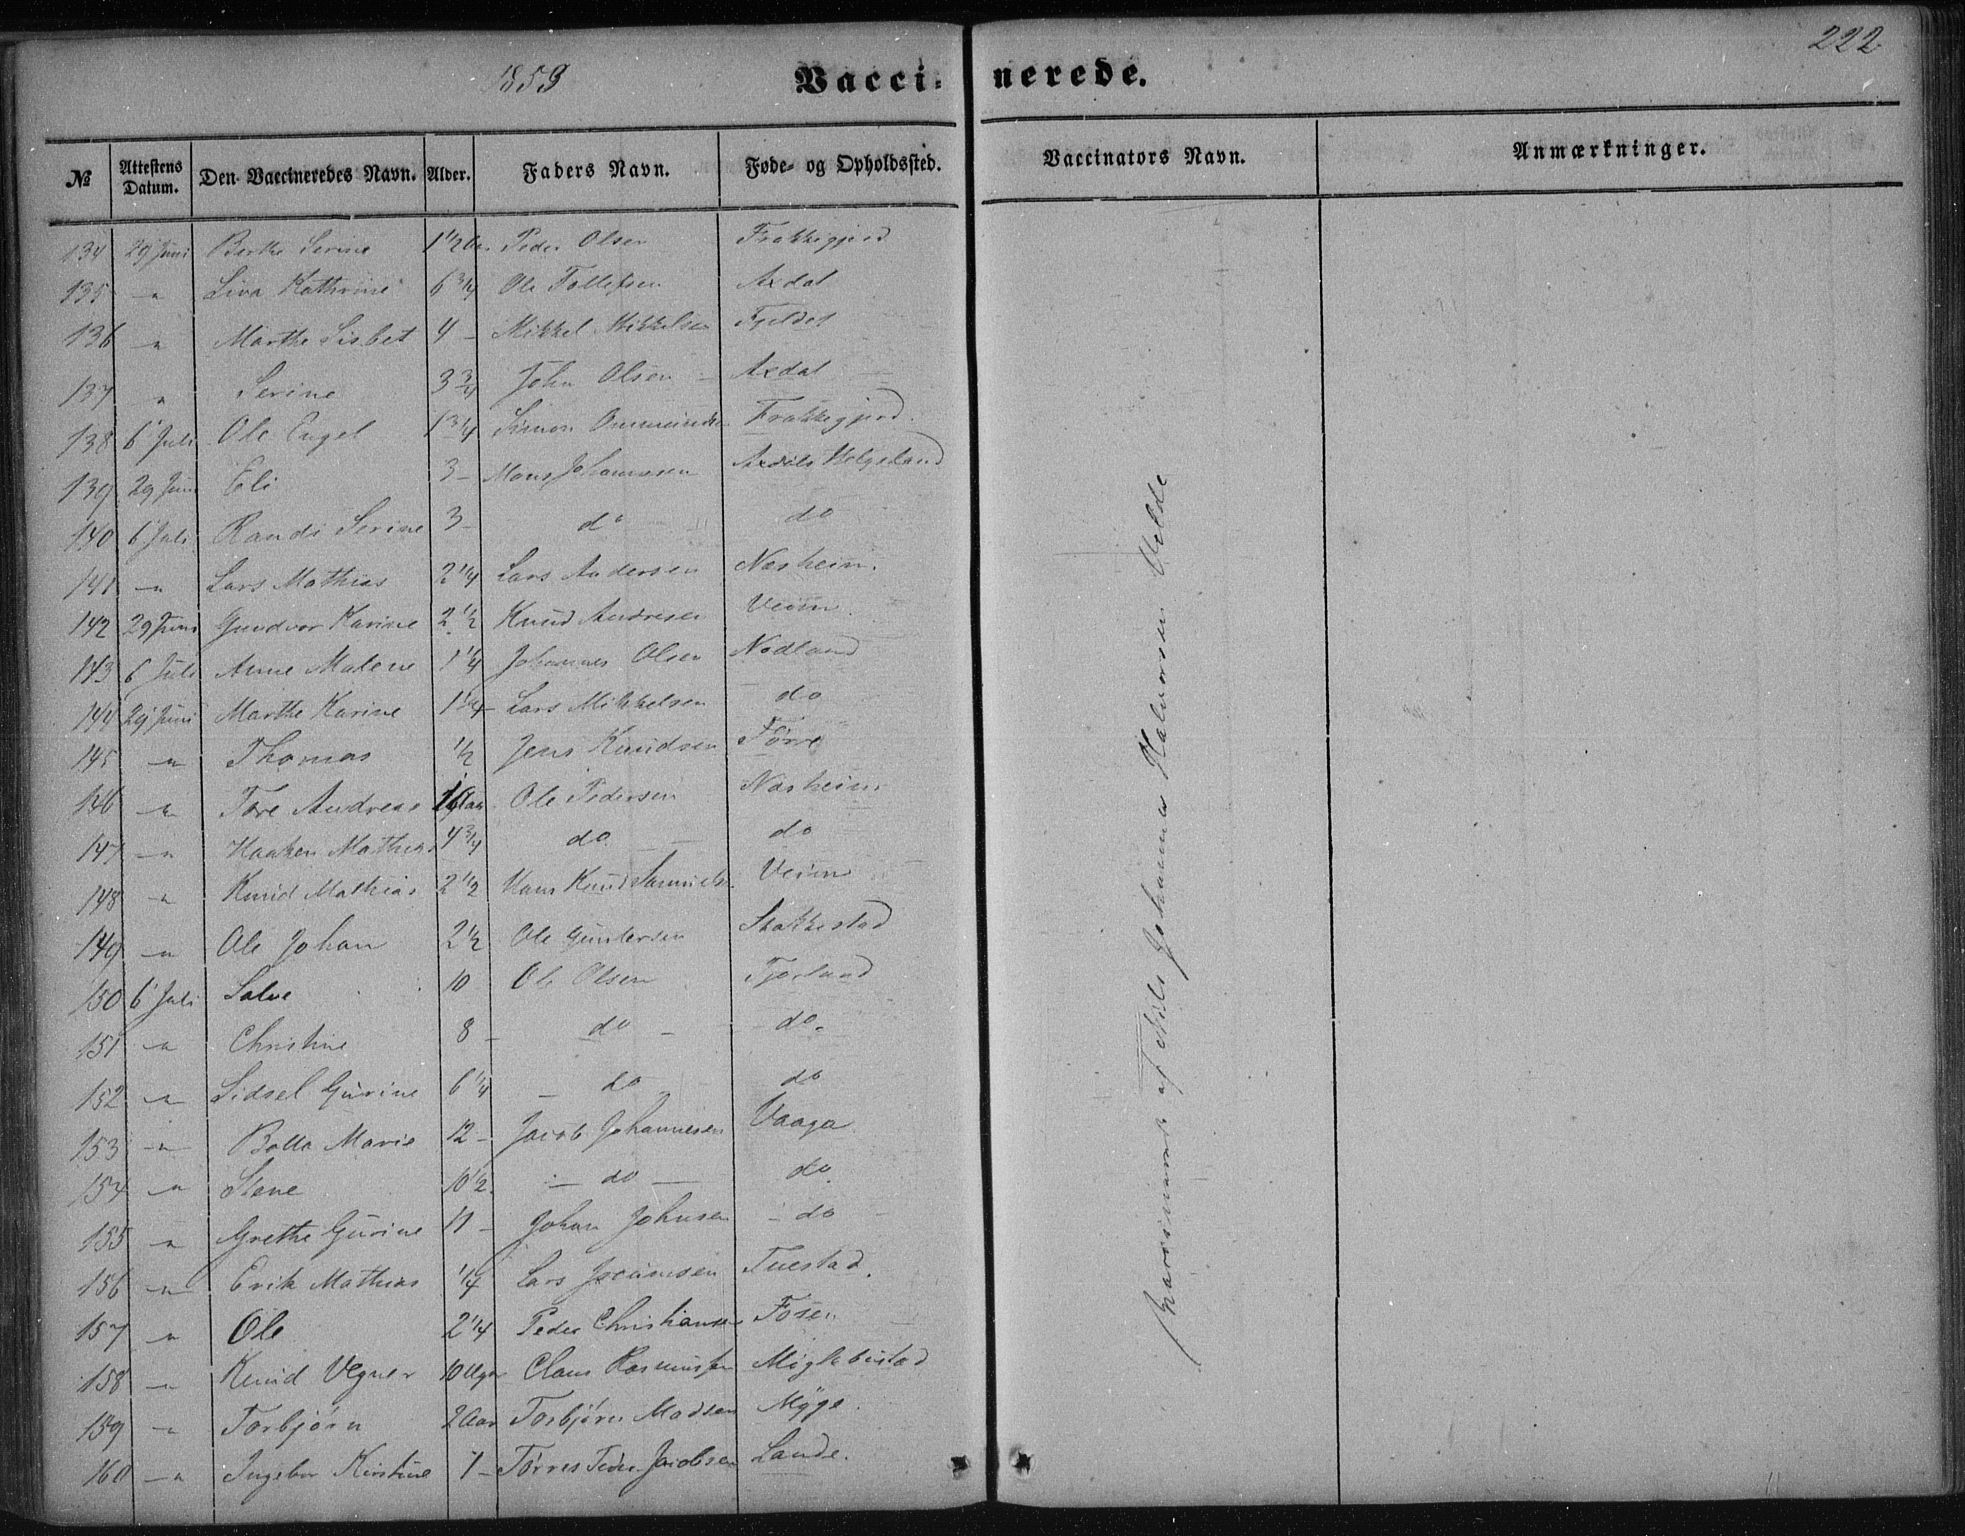 1859 Vacci- nerede. 222
No Attestens Datum. Den Vaccineredes Navn. Alder. Faders Navn. Føde- og Opholdssted. Vaccinators Navn. Anmærkninger.
134 29 Juni Berthe Serine 1 1/2 Aar Peder Olsen Frakkegjerd
135 -"- Liva Kathrine 6 3/4 Ole Tollefsen Axdal
136 -"- Marthe Lisbet 4 - Mikkel Mikkelsen Fjeldet
137 " Serine 3 3/4 John Olsen - Axdal
138 6 Juli Ole Engel 1 3/4 Simon Frakkegjerd.
139 29 Juni Eli 3 - Mons Johannesen Helgeland
140 6 Juli Randi Serine 3 - do do
141 -"- Lars Mathias 2 1/4 Lars Andersen Nasheim.
142 29 Juni Gundvor Karine 2 1/2 Knud Andresen Veim.
143 6 Juli Anne Malene 1 1/4 Johannes Olsen Nodland
144 29 Juni Marthe Karine 1 1/4 - Lars Mikkelsen do
145 -"- Thomas 1/2 Jens Knudsen Førre
146 -"- Tore Andreas Aar Ole Pedersen Nasheim
147 -"- Haaken Mathias 4 3/4 do - do
148 -"- Knud Mathias 2 1/2 Hans Knud Samuels. Veim
149 -"- Ole Johan 2 1/2 Ole Guntersen Stakkestad
150 6 Juli Salve 10 Ole Olsen Tjorland
151 -"- Christine 8 - do - do.
152 -"- Sidsel Gurine 6 1/4 - do do
153 -"- Bolla Marie 12 - Jacob Johannesen Vaaga
154 -"- Stene 10 1/2. - do - do.
155 -"- Grethe Gurine 11 - Johan Johnsen - do -
156 -"- Erik Mathias 1/4 Lars Tuestad.
157 -"- Ole 2 1/4 Peder Christiansen Fosen
158 -"- Knud Vegner 10 Uger Claus Rasmussen Miglebustad
159 -"- Torbjørn 2 Aar Torbjørn Madsen Myge.
160 -"- Ingebor Kirstine 7 - Tørres Peder Jacobsen Lande.
af Nils Johannes Halvorsen Velde